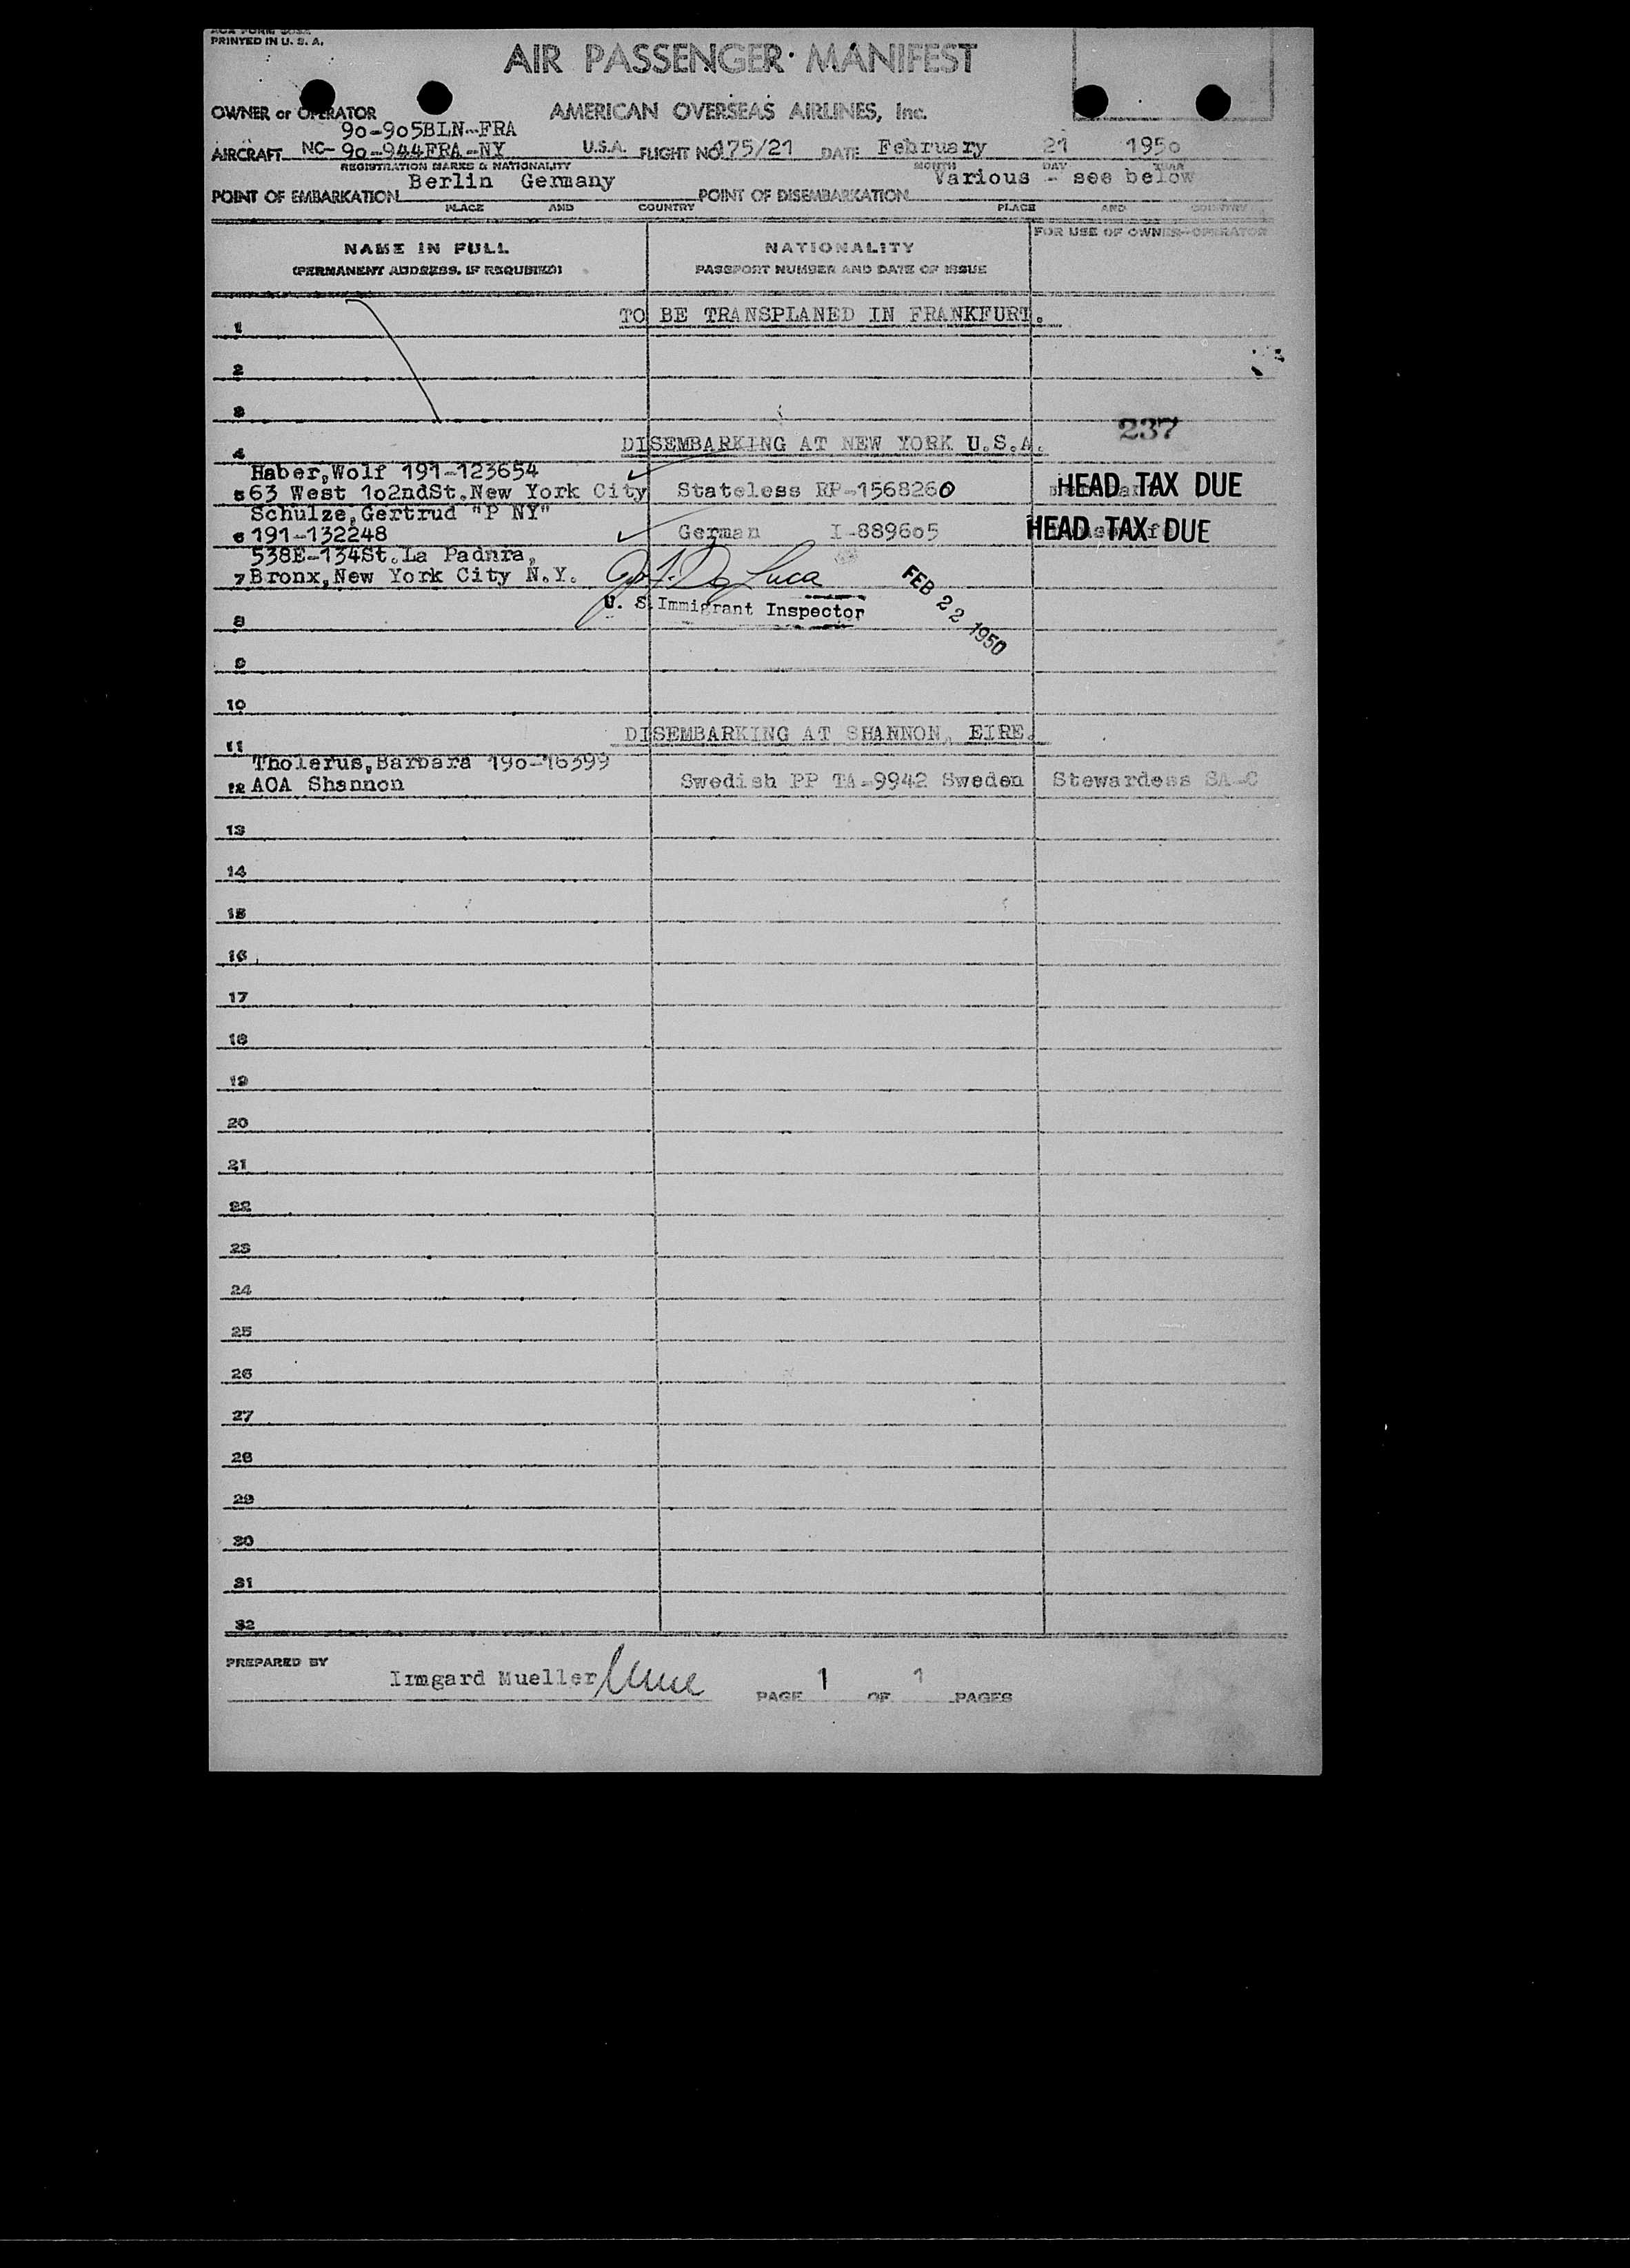 PRINTED IN U. S. A.
AIR PASSENGER MANIFEST
OWNER or OPERATOR AMERICAN OVERSEAS AIRLINES, Inc.
9o-9o5BLN-FRA
AIRCRAFT NC- 9o-944FRA-NY U.S.A. FLIGHT NO 175/21 DATE February 21 195o
REGISTRATION MARKS & NATIONALITY MONTH DAY YEAR
Berlin Germany Various - see below
POINT OF EMBARKATION POINT OF DISEMBARKATION
PLACE AND COUNTRY PLACE AND COUNTRY
FOR USE OF OWNER-OPERATOR
NAME IN FULL NATIONALITY
(PERMANENT ADDRESS, IF REQUIRED) PASSPORT NUMBER AND DATE OF ISSUE
TO BE TRANSPLANED IN FRANKFURT.
1
2
3
237
DISEMBARKING AT NEW YORK U.S.A.
4
Haber,Wolf 191-123654
5 63 West 1o2ndSt.New York City Stateless RP-1568260 HEAD TAX DUE
Schulze,Gertrud "P NY"
6 191-132248 German I-8896o5 HEAD TAX DUE
538E-134St.La Padnra,
7 Bronx,New York City N.Y. De Luca
U. S. Immigrant Inspector FEB 22 1950
8
9
10
DISEMBARKING AT SHANNON, EIRE.
11
Tholerus,Barbara 19o-16399
12 AOA Shannon Swedish PP TA-9942 Sweden Stewardess SA-C
13
14
15
16
17
18
19
20
21
22
23
24
25
26
27
28
29
30
31
32
PREPARED BY
Irmgard Mueller
PAGE 1 OF 1 PAGES